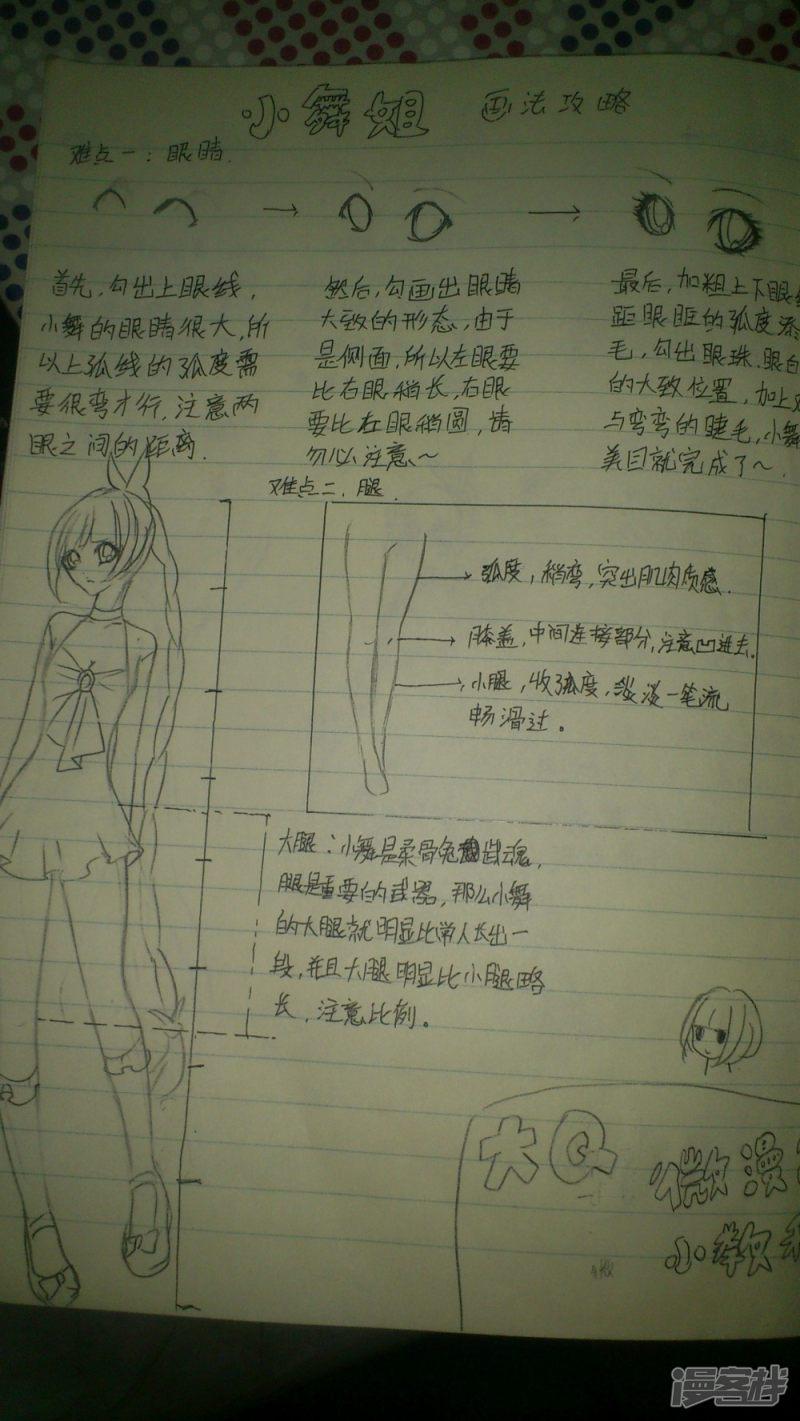 小舞姐 画法攻略
难点一：眼睛.
首先,勾出上眼线,
小舞的眼睛很大,所
以上弧线的弧度需
要很弯才行,注意两
眼之间的距离.
然后,勾画出眼睛
大致的形态,由于
是侧面,所以左眼要
比右眼稍长,右眼
要比左眼稍圆,请
勿必注意~
最后,加粗上下眼
距眼眶的弧度添
毛,勾出眼珠.眼白
的大致位置,加上
与弯弯的睫毛,小舞
美目就完成了~.
难点二.腿.
弧度,稍弯,突出肌肉质感.
膝盖,中间连接部分,注意凹进去.
小腿,收弧度,淡一笔流
畅滑过。
大腿:小舞是柔骨兔武魂,
腿是重要的武器,那么小舞
的大腿就明显比常人长出一
段,并且大腿明显比小腿略
长,注意比例。
大Q
微漫
小教
漫客栈